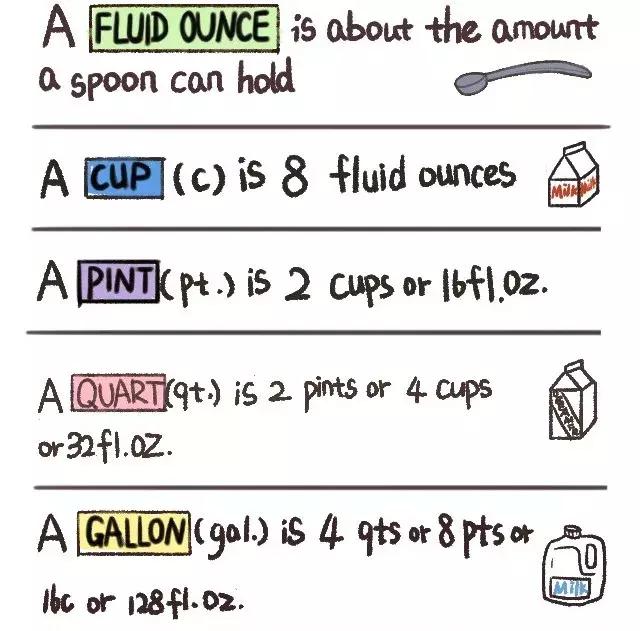 A FLUID OUNCE is about the amount
a spoon can hold
A CUP (c) is 8 fluid ounces
Milk Milk
A PINT (pt.) is 2 cups or 16fl.oz.
A QUART (qt.) is 2 pints or 4 cups
or 32fl.oz.
A GALLON (gal.) is 4 qts or 8 pts or
16c or 128fl.oz.
Milk